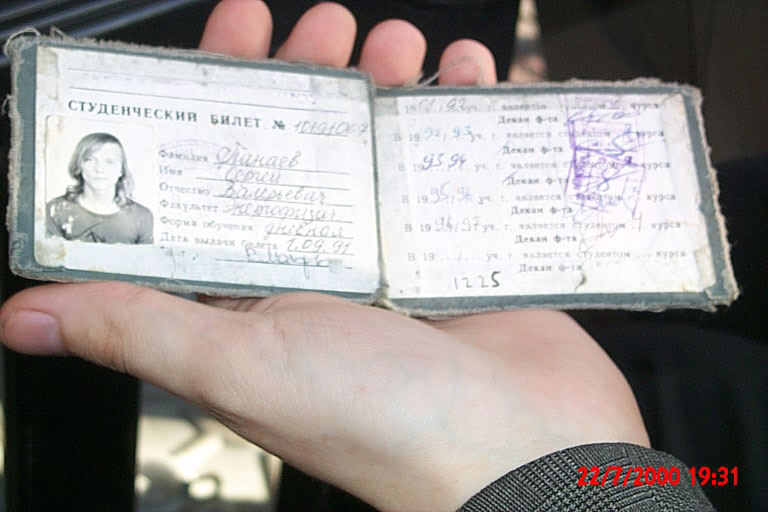 СТУДЕНЧЕСКИЙ БИЛЕТ №
Фамилия
Имя Сергей
Отчество Валерьевич
Факультет
Форма обучения дневная
Дата выдачи билета 1.09.91
уч. г. является студентом курса
Декан ф-та
В 1992/93 уч. г. является студентом курса
Декан ф-та
В 1993/94 уч. г. является студентом курса
Декан ф-та
В 1995/96 уч. г. является студентом курса
Декан ф-та
В 1996/97 уч. г. является студентом курса
Декан ф-та
В 19..../.... уч. г. является студентом ... курса
Декан ф-та
1225
22/7/2000 19:31